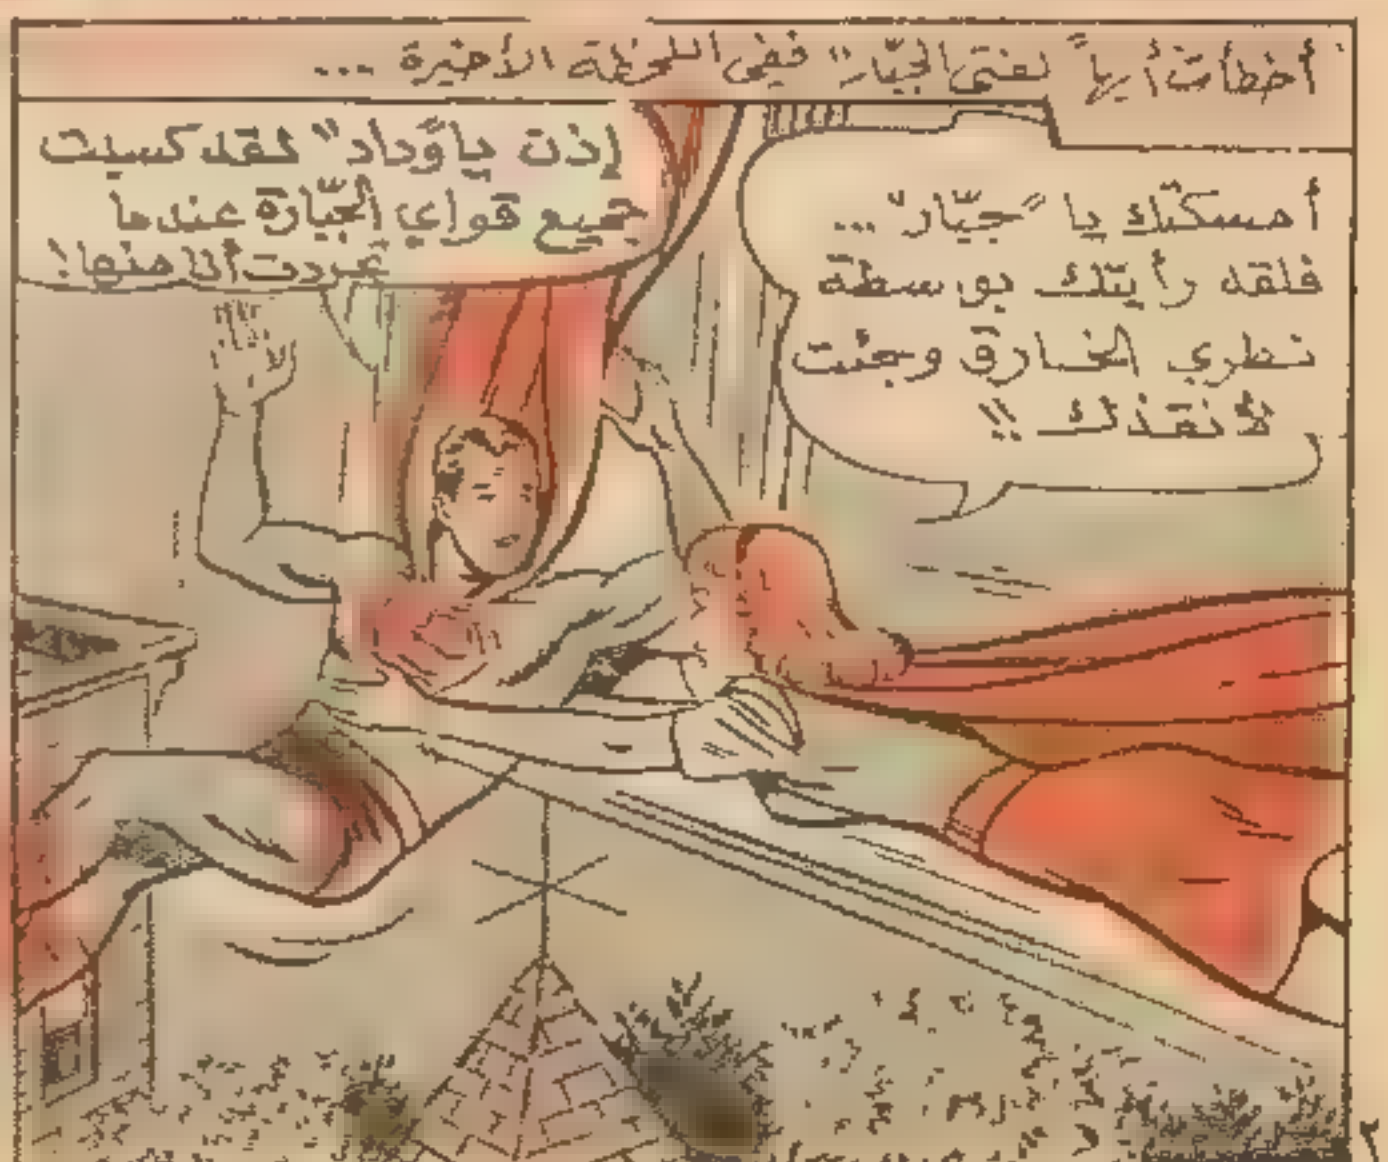 أخطأت أيها "لفتى الجبّار" ففي اللحظة الأخيرة ...
أمسكتك يا "جبّار" ...
فلقد رأيتك بوسطة
نظري الخارق وجئت
لأنقذك !!
إذن يا "وداد" لقد كسبت
جميع قواي الجبّارة عندما
تجردت أنا منها!